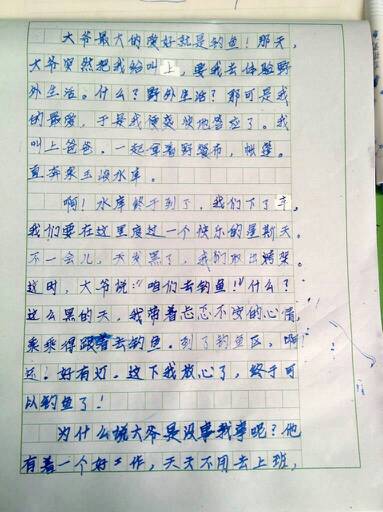 大爷最大的爱好就是钓鱼！那天，
大爷突然把我给叫上，要我去体验野
外生活。什么？野外生活？那可是我
的最爱，于是我便爽快地答应了。我
叫上爸爸，一起拿着野餐布，帐篷。
直奔来三河水库。
啊！水库终于到了，我们下了车，
我们要在这里度过一个快乐的星期天。
不一会儿，天发黑了，我们放出
这时，大爷说："咱们去钓鱼！"什么？
这么黑的天，我带着忐忑不安的心情，
乘乘得跟着去钓鱼。到了钓鱼区，啊！
还好有灯。这下我放心了，终于可
以钓鱼了！
为什么说大爷是没事找事呢？他
有着一个好工作，天天不用去上班，